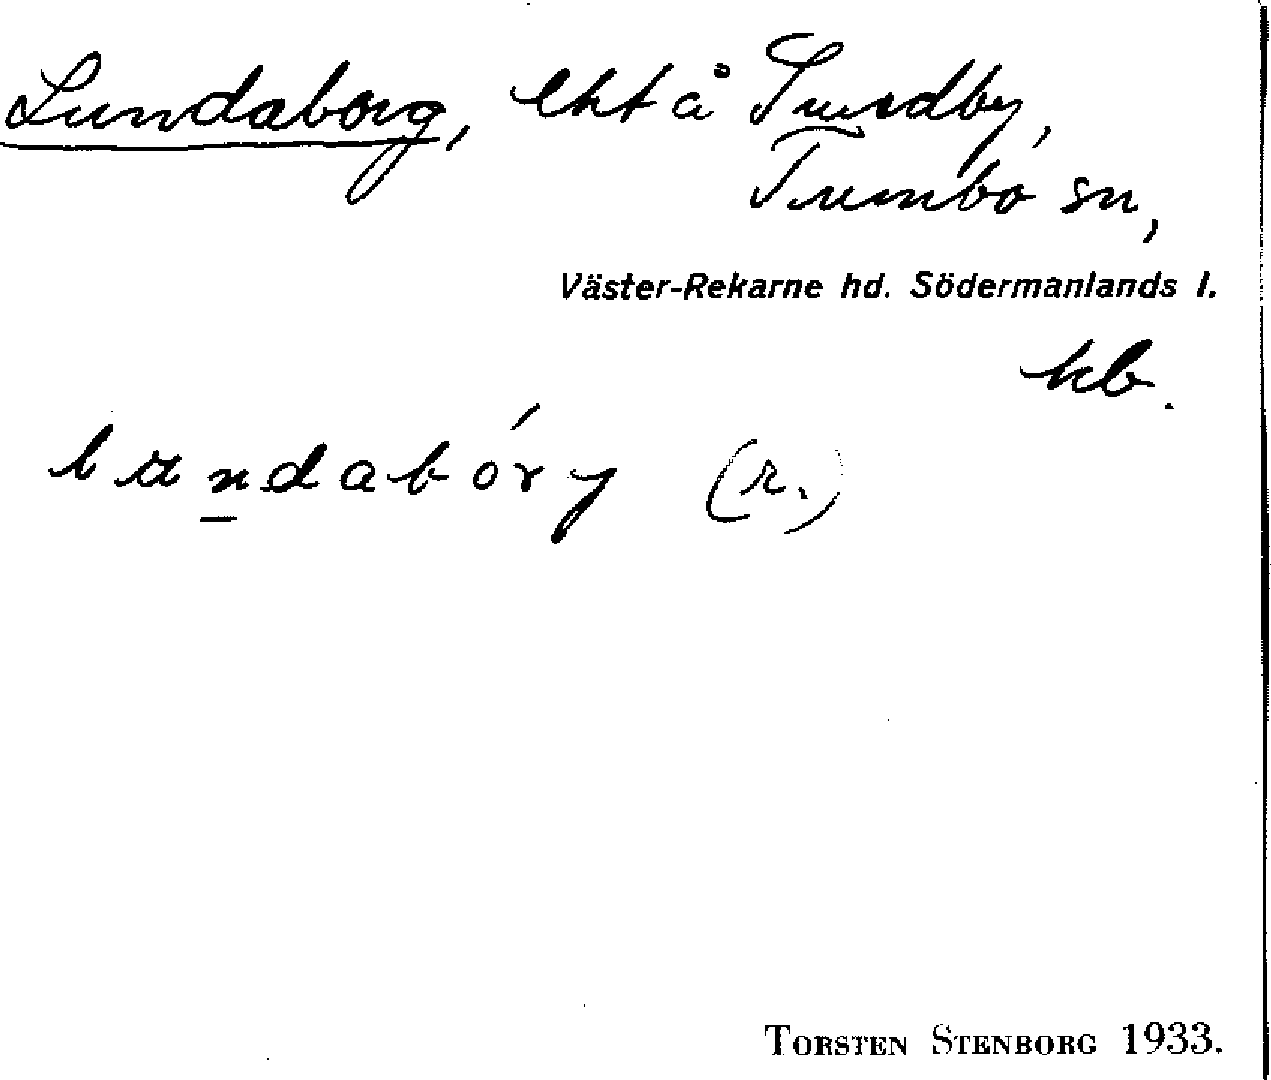 Lundaborg, lht å Sundby,
Tumbo sn,
Väster-Rekarne hd. Södermanlands l.
kb.
(r.)
TORSTEN STENBORG 1933.